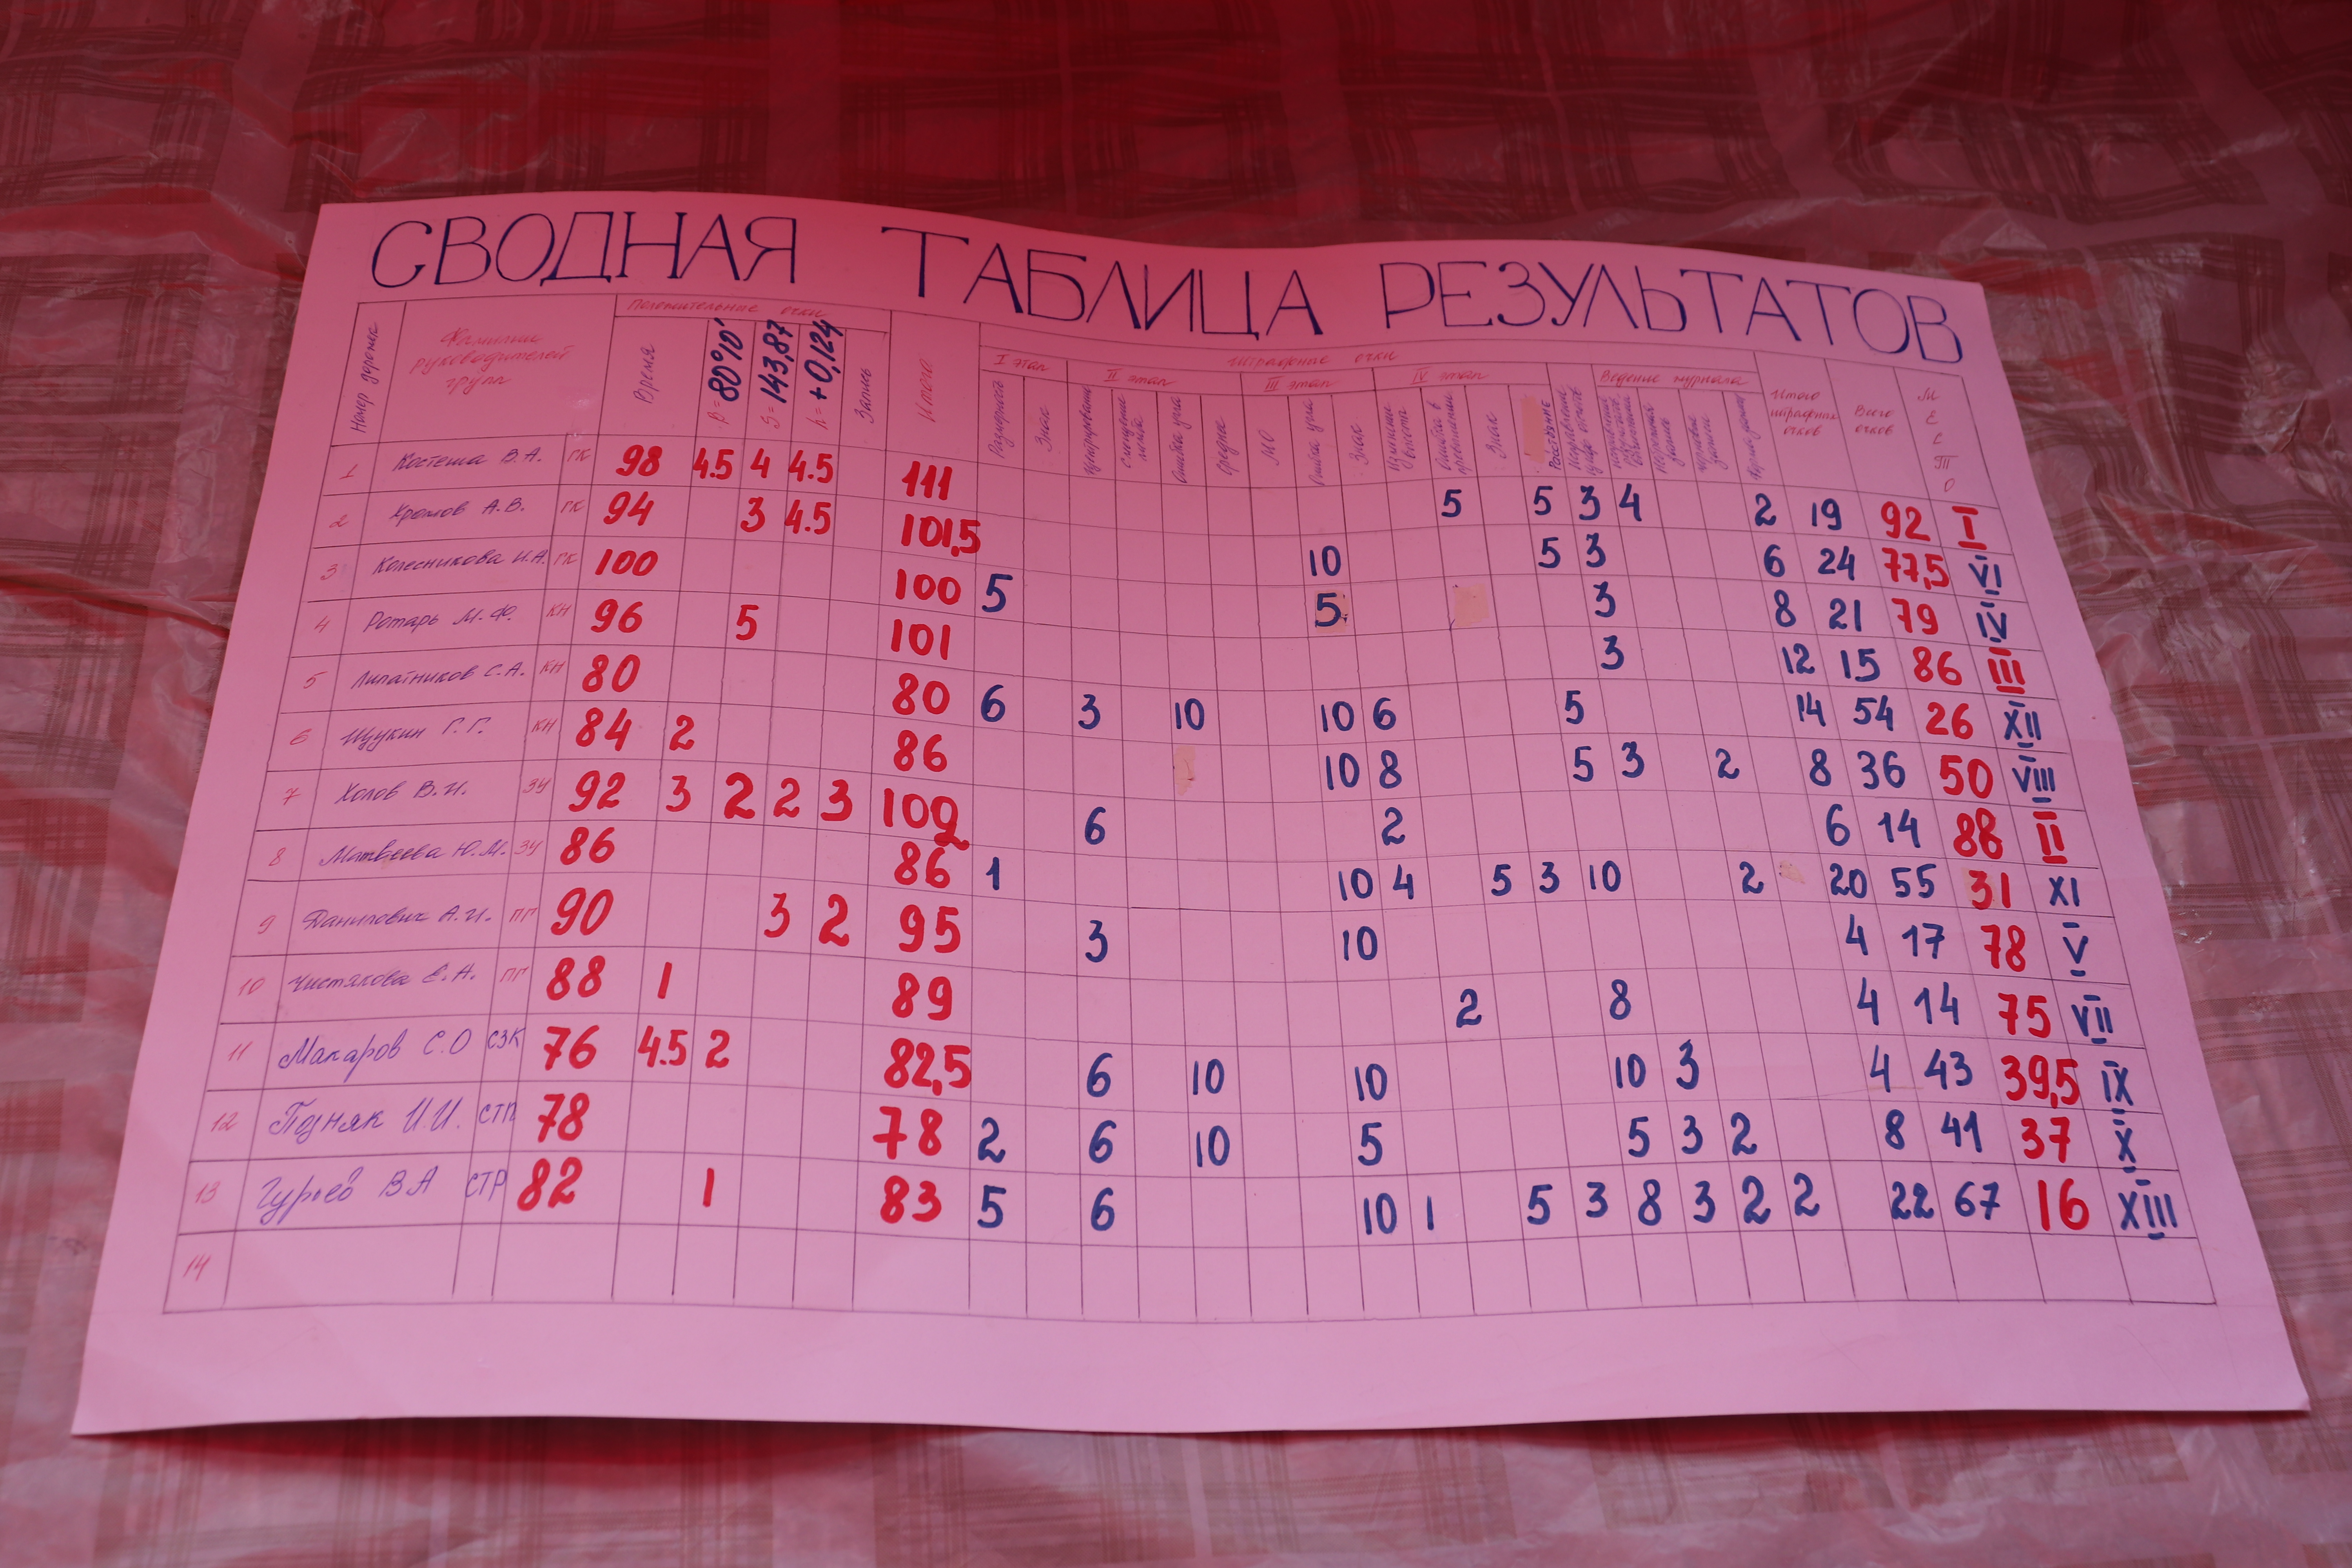 СВОДНАЯ ТАБЛИЦА РЕЗУЛЬТАТОВ
Номер дорожек Фамилии руководителей групп Положительные очки Итого Штрафные очки Итого штрафных очков Всего очков МЕСТО
Время β= 80°10' S= 143,87 h= +0,124 Запись
I этап II этап III этап IV этап Ведение журнала
Знак Центрирование Смещение Ошибка угла Среднее МО Ошибка угла Знак Ошибка в превышении Знак Расстояние
1 Костеша В.А. ГК 98 4.5 4 4.5 111 5 5 3 4 2 19 92 I
2 Хромов А.В. ГК 94 3 4.5 101,5 10 5 3 6 24 77,5 VI
3 Колесникова И.А. ГК 100 100 5 5 3 8 21 79 IV
4 Ротарь М.Ф. КН 96 5 101 3 12 15 86 III
5 Липатников С.А. КН 80 80 6 3 10 10 6 5 14 54 26 XII
6 Щукин Г.Г. КН 84 2 86 10 8 5 3 2 8 36 50 VIII
7 Холов В.И. ЗУ 92 3 2 2 3 102 6 2 6 14 88 II
8 Матвеева Ю.М. ЗУ 86 86 1 10 4 5 3 10 2 20 55 31 XI
9 Данилович А.И. ПГ 90 3 2 95 3 10 4 17 78 V
10 Чистякова Е.А. ПГ 88 1 89 2 8 4 14 75 VII
11 Макаров С.О СЗК 76 4.5 2 82,5 6 10 10 10 3 4 43 39,5 IX
12 Подняк И.И. СТП 78 78 2 6 10 5 5 3 2 8 41 37 X
13 Гурьев ВА СТР 82 1 83 5 6 10 1 5 3 8 3 2 2 22 67 16 XIII
14